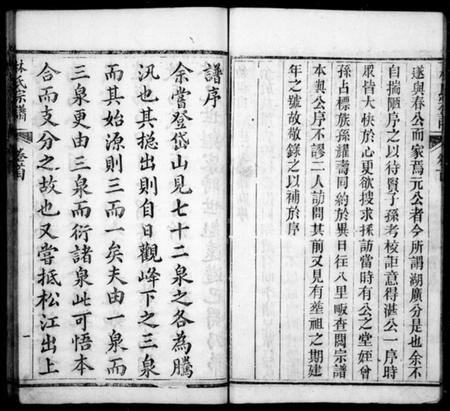 遂與春公而家焉元公者今所謂湖廣分是也余不
自揣陋序之以待賢子孫考校詎意得湛公一序時
眾皆大快於心更欲搜求採訪當時有公之堂姪曾
孫占標族孫耀壽同約於異日往八里畈查閱宗譜
本與公序不謬二人訪問其前又見有荖祖之期建
年之號故敬錄之以補於序
譜序
余嘗登岱山見七十二泉之各為騰
汎也其揔出則自日觀峰下之三泉
而其始源則三而一矣夫由一泉而
三泉更由三泉而衍諸泉此可悟本
合而支分之故也又嘗抵松江出上
林氏宗譜
卷首